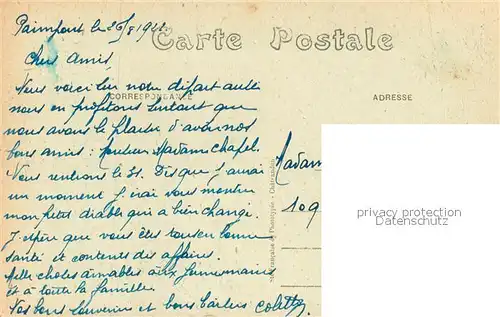 Paimpont, le 26/8 1922
Carte Postale
Chers amis.
CORRESPONDANCE
ADRESSE
Vous voici notre départ aussi
nous en profitons surtout que
nous avons le plaisir d'avoir nos
bons amis : Monsieur Madame Chapel.
Madam
Vous rentrons le 31. Dès que j'aurai
un moment j'irai vous montrer
mon petit diable qui a bien changé.
109
privacy protection
Datenschutz
J'espère que vous êtes tous en bonne
santé et contents des affaires.
Mille choses aimables aux
et à toute la famille.
Nos bons souvenirs et bons baisers Colette